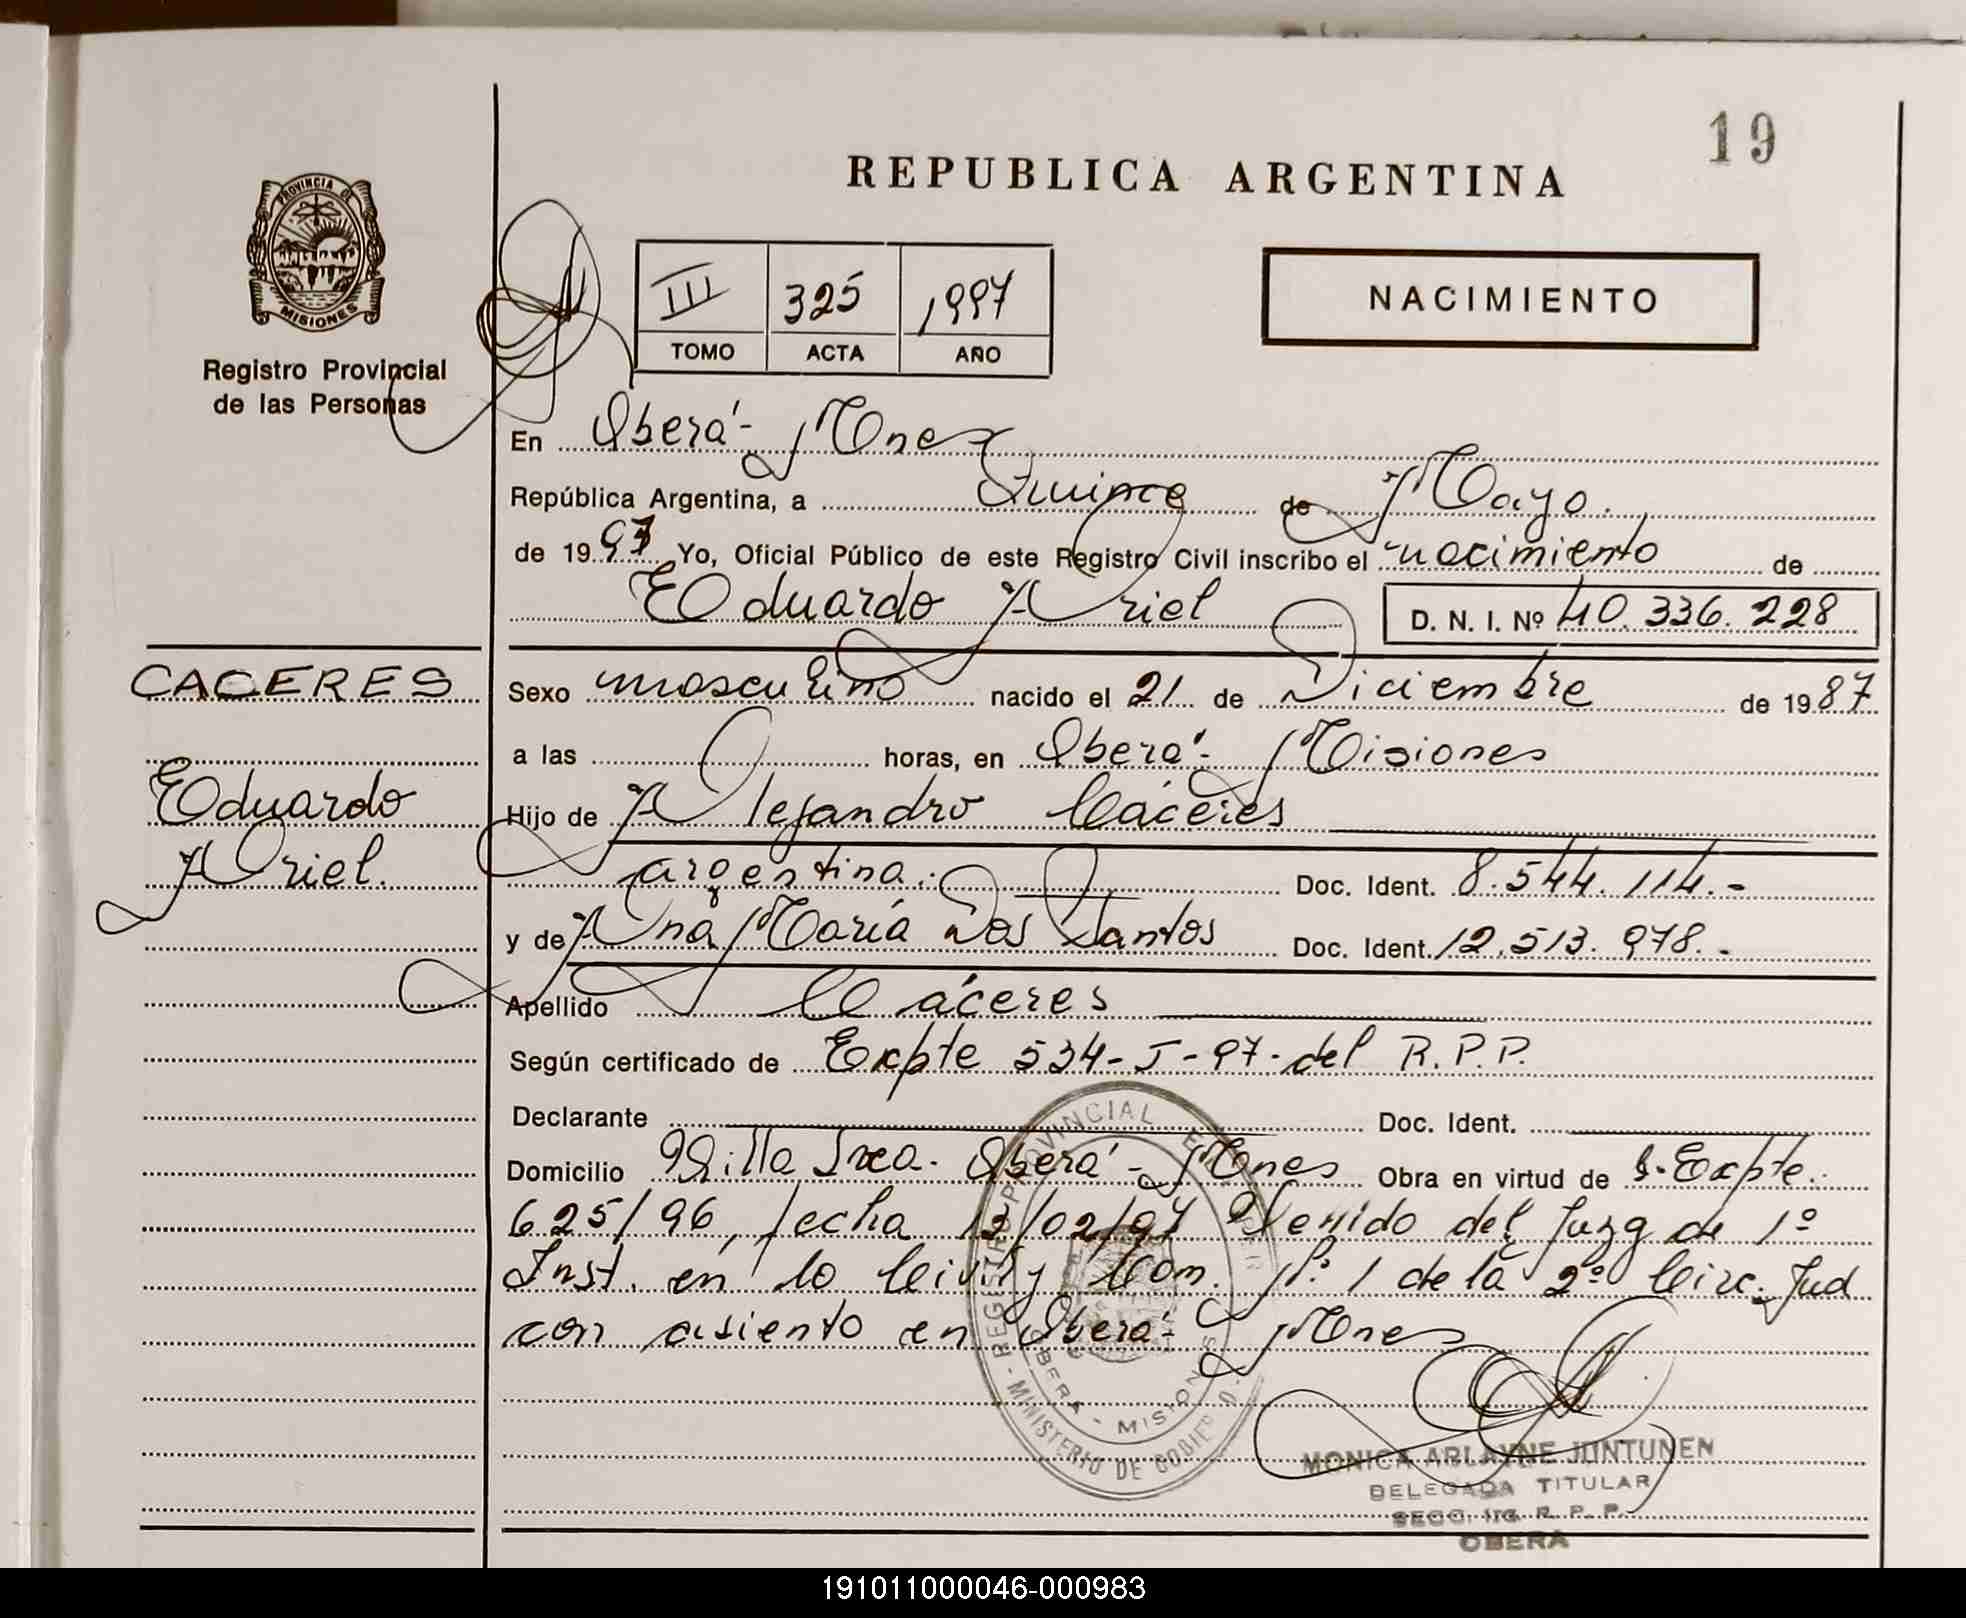 19
REPUBLICA ARGENTINA
PROVINCIA DE
MISIONES
Registro Provincial
de las Personas
III 325 1997
TOMO ACTA AÑO
NACIMIENTO
En Oberá - Mnes
República Argentina, a Quince de Mayo.
de 1997 Yo, Oficial Público de este Registro Civil inscribo el nacimiento de
Eduardo Ariel D. N. I. Nº 40.336.228
CACERES
Eduardo
Ariel.
Sexo masculino nacido el 21 de Diciembre de 1987
a las horas, en Oberá - Misiones
Hijo de Alejandro Cáceres
argentina. Doc. Ident. 8.544.114.-
y de Ana María Dos Santos Doc. Ident. 12.513.978.-
Apellido Cáceres
Según certificado de Expte 534-J-97- del R.P.P.
Declarante Doc. Ident.
Domicilio Villa Oberá - Mnes Obra en virtud de Expte.
625/96, fecha 12/02/97 Venido del Juzg de 1º
Inst. en lo Civil y Com. Nº 1 de la 2º Circ. Jud
con asiento en Oberá - Mnes
REGISTRO PROVINCIAL
OBERA - MISIONES
MINISTERIO DE GOBIERNO
MONICA ARLAYNE JUNTUNEN
DELEGADA TITULAR
SECC. R. P. P.
OBERA
191011000046-000983